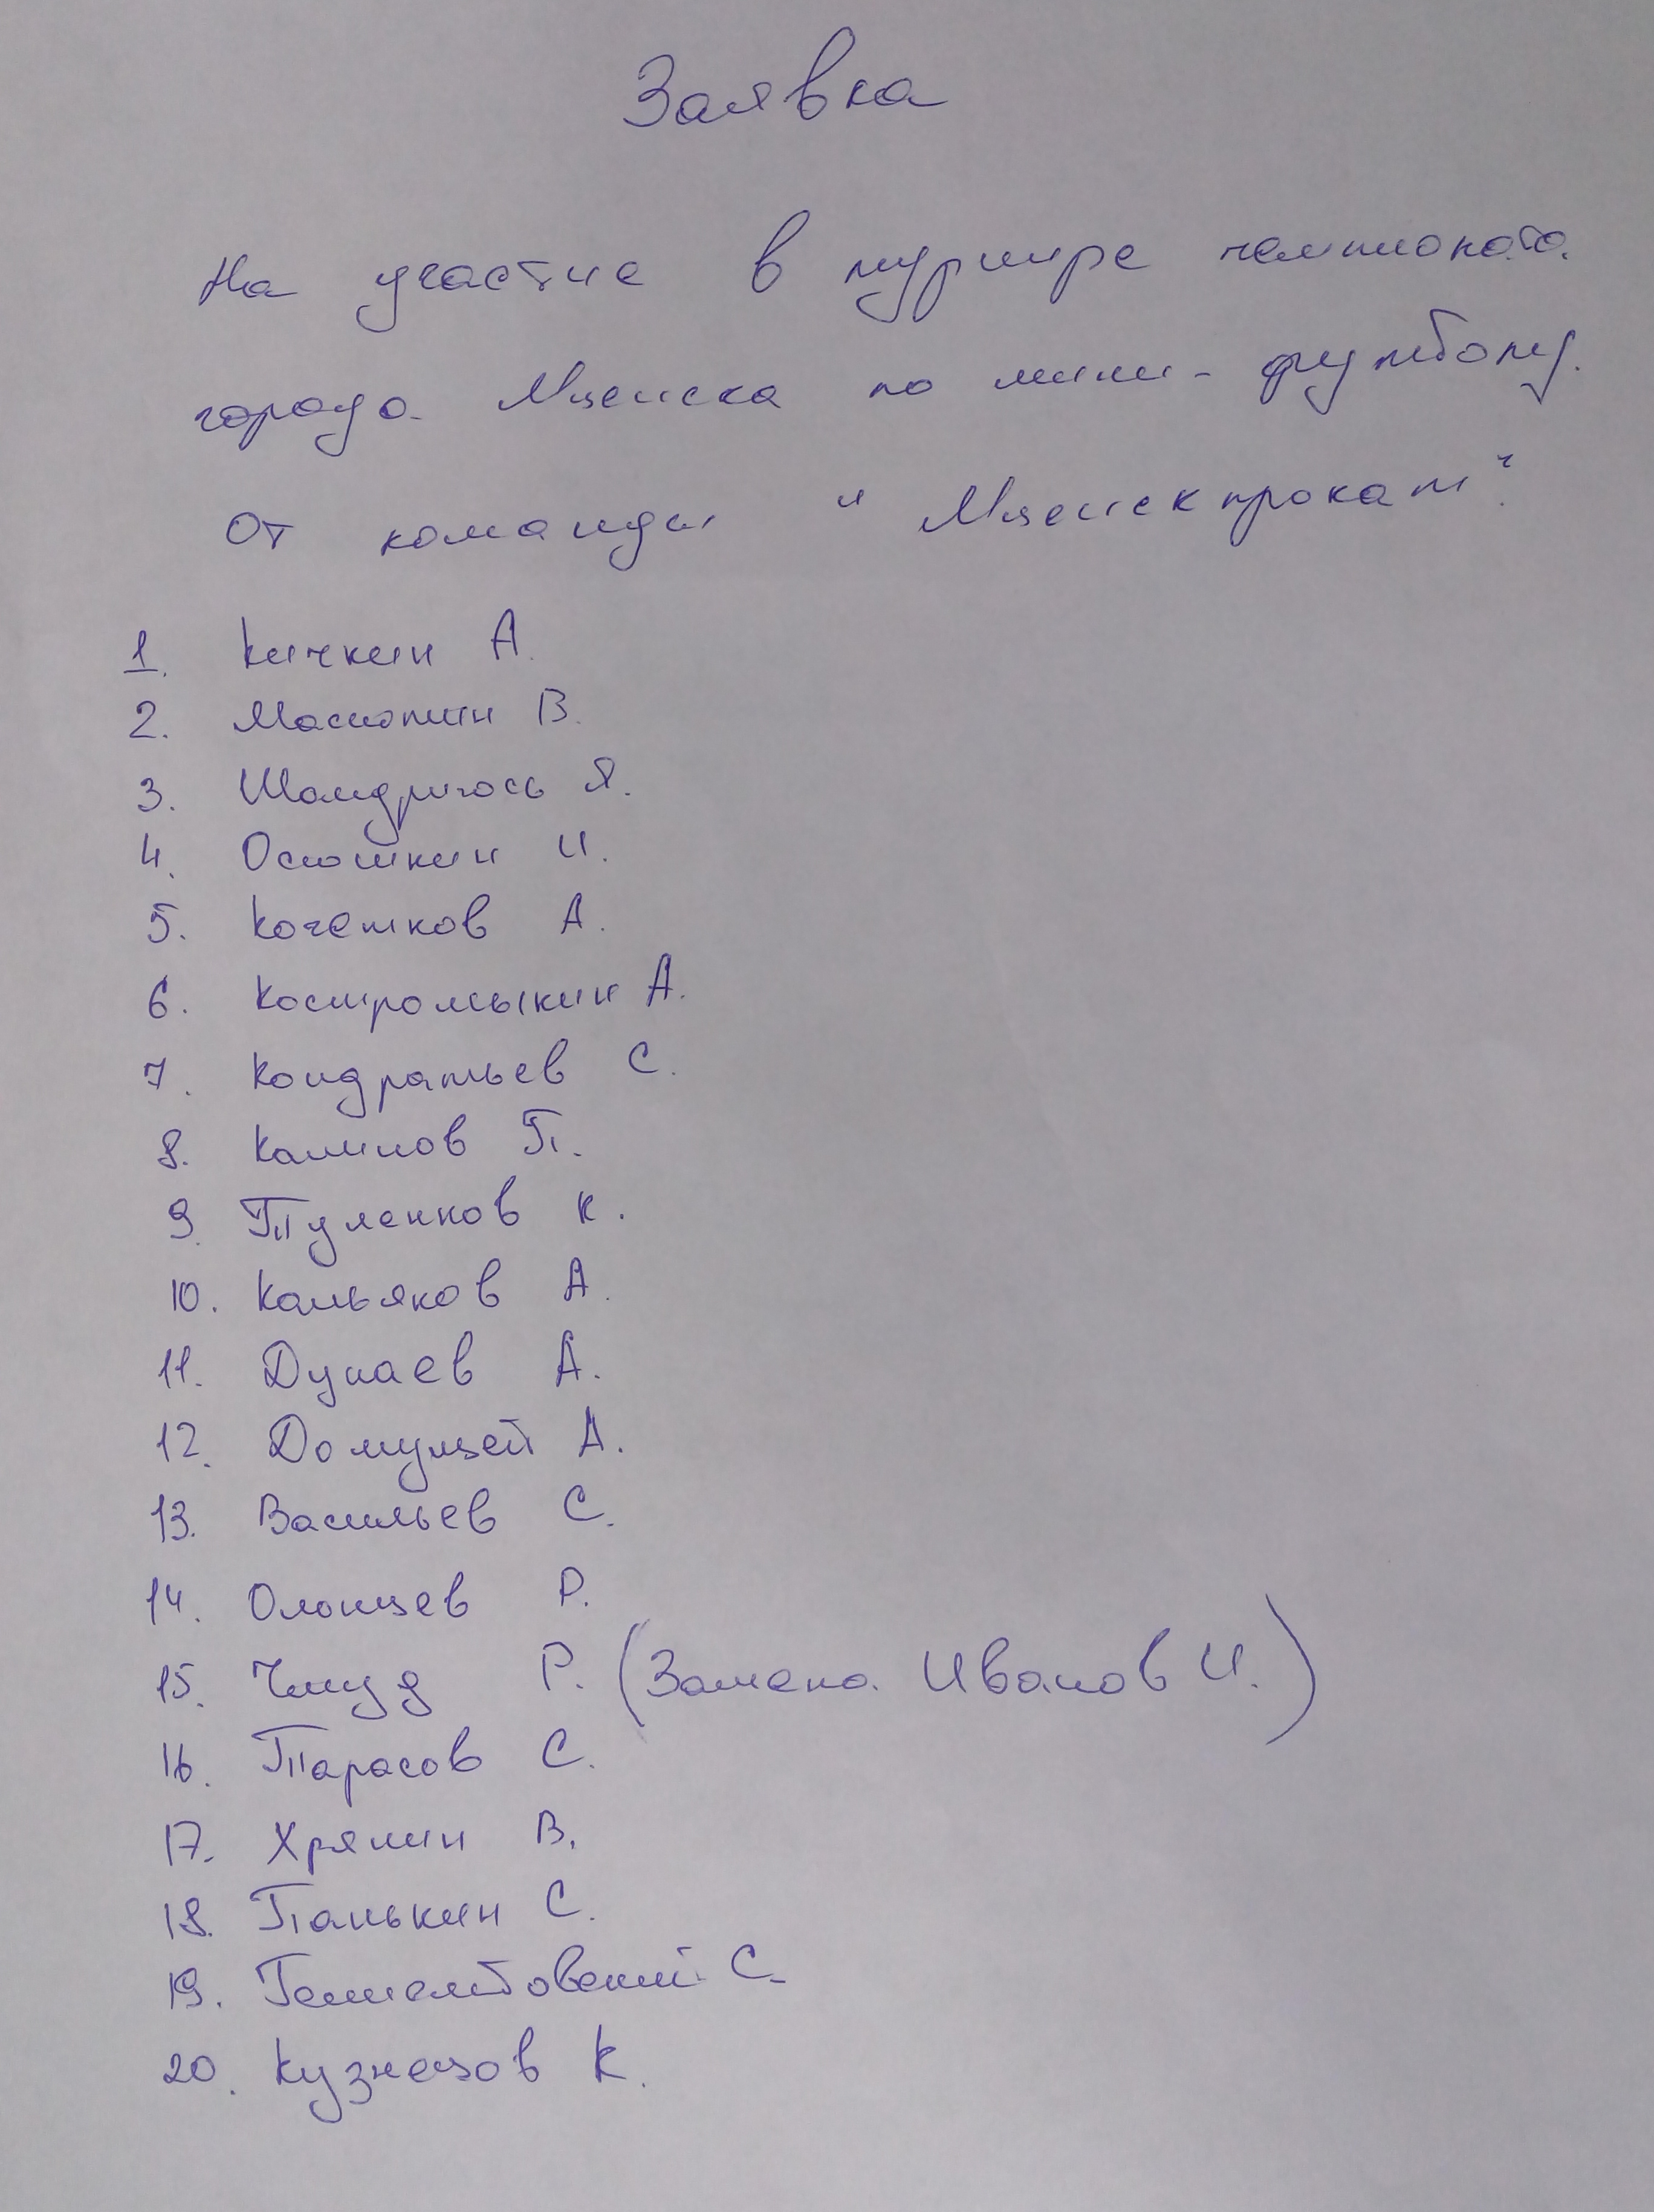 Заявка
На участие в турнире чемпионата
города Мценска по мини-футболу.
От команды "Мценскпрокат".
1. Кичкин А.
2. Масютин В.
3. Шандригось Я.
4. Осюшкин И.
5. Кочетков А.
6. Костромыкин А.
7. Кондратьев С.
8. Калинов П.
9. Туленков К.
10. Кальяков А.
11. Дунаев А.
12. Домулцей А.
13. Васильев С.
14. Олонцев Р.
15. Р. (Замена Иванов И.)
16. Тарасов С.
17. Хрянин В.
18. Панькин С.
19. С.
20. Кузнецов К.